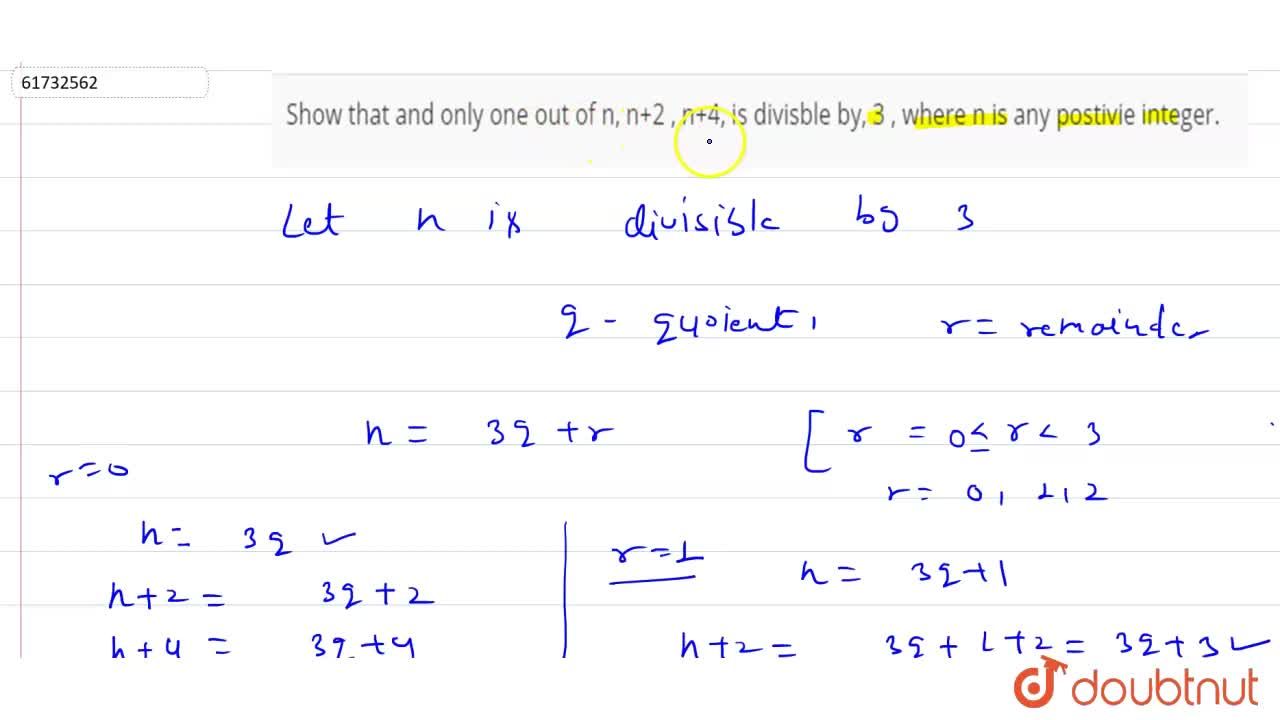 61732562
Show that and only one out of n, n+2 , n+4, is divisble by, 3 , where n is any postivie integer.
Let n is divisible by 3
q - quoient, r = remainder
n = 3q + r [ r = 0 ≤ r < 3
r = 0
r = 0, 1, 2
n = 3q ✓
r = 1 n = 3q+1
n+2 = 3q + 2
n+4 = 3q+4
n+2 = 3q + 1+2 = 3q+3 ✓
doubtnut